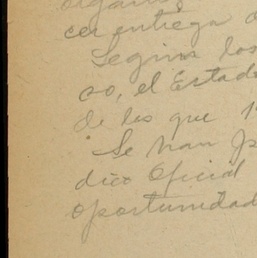 organi
cer entrega
Segun los
co, el Estad
de los que
Se han
dico Oficial
oportunidad